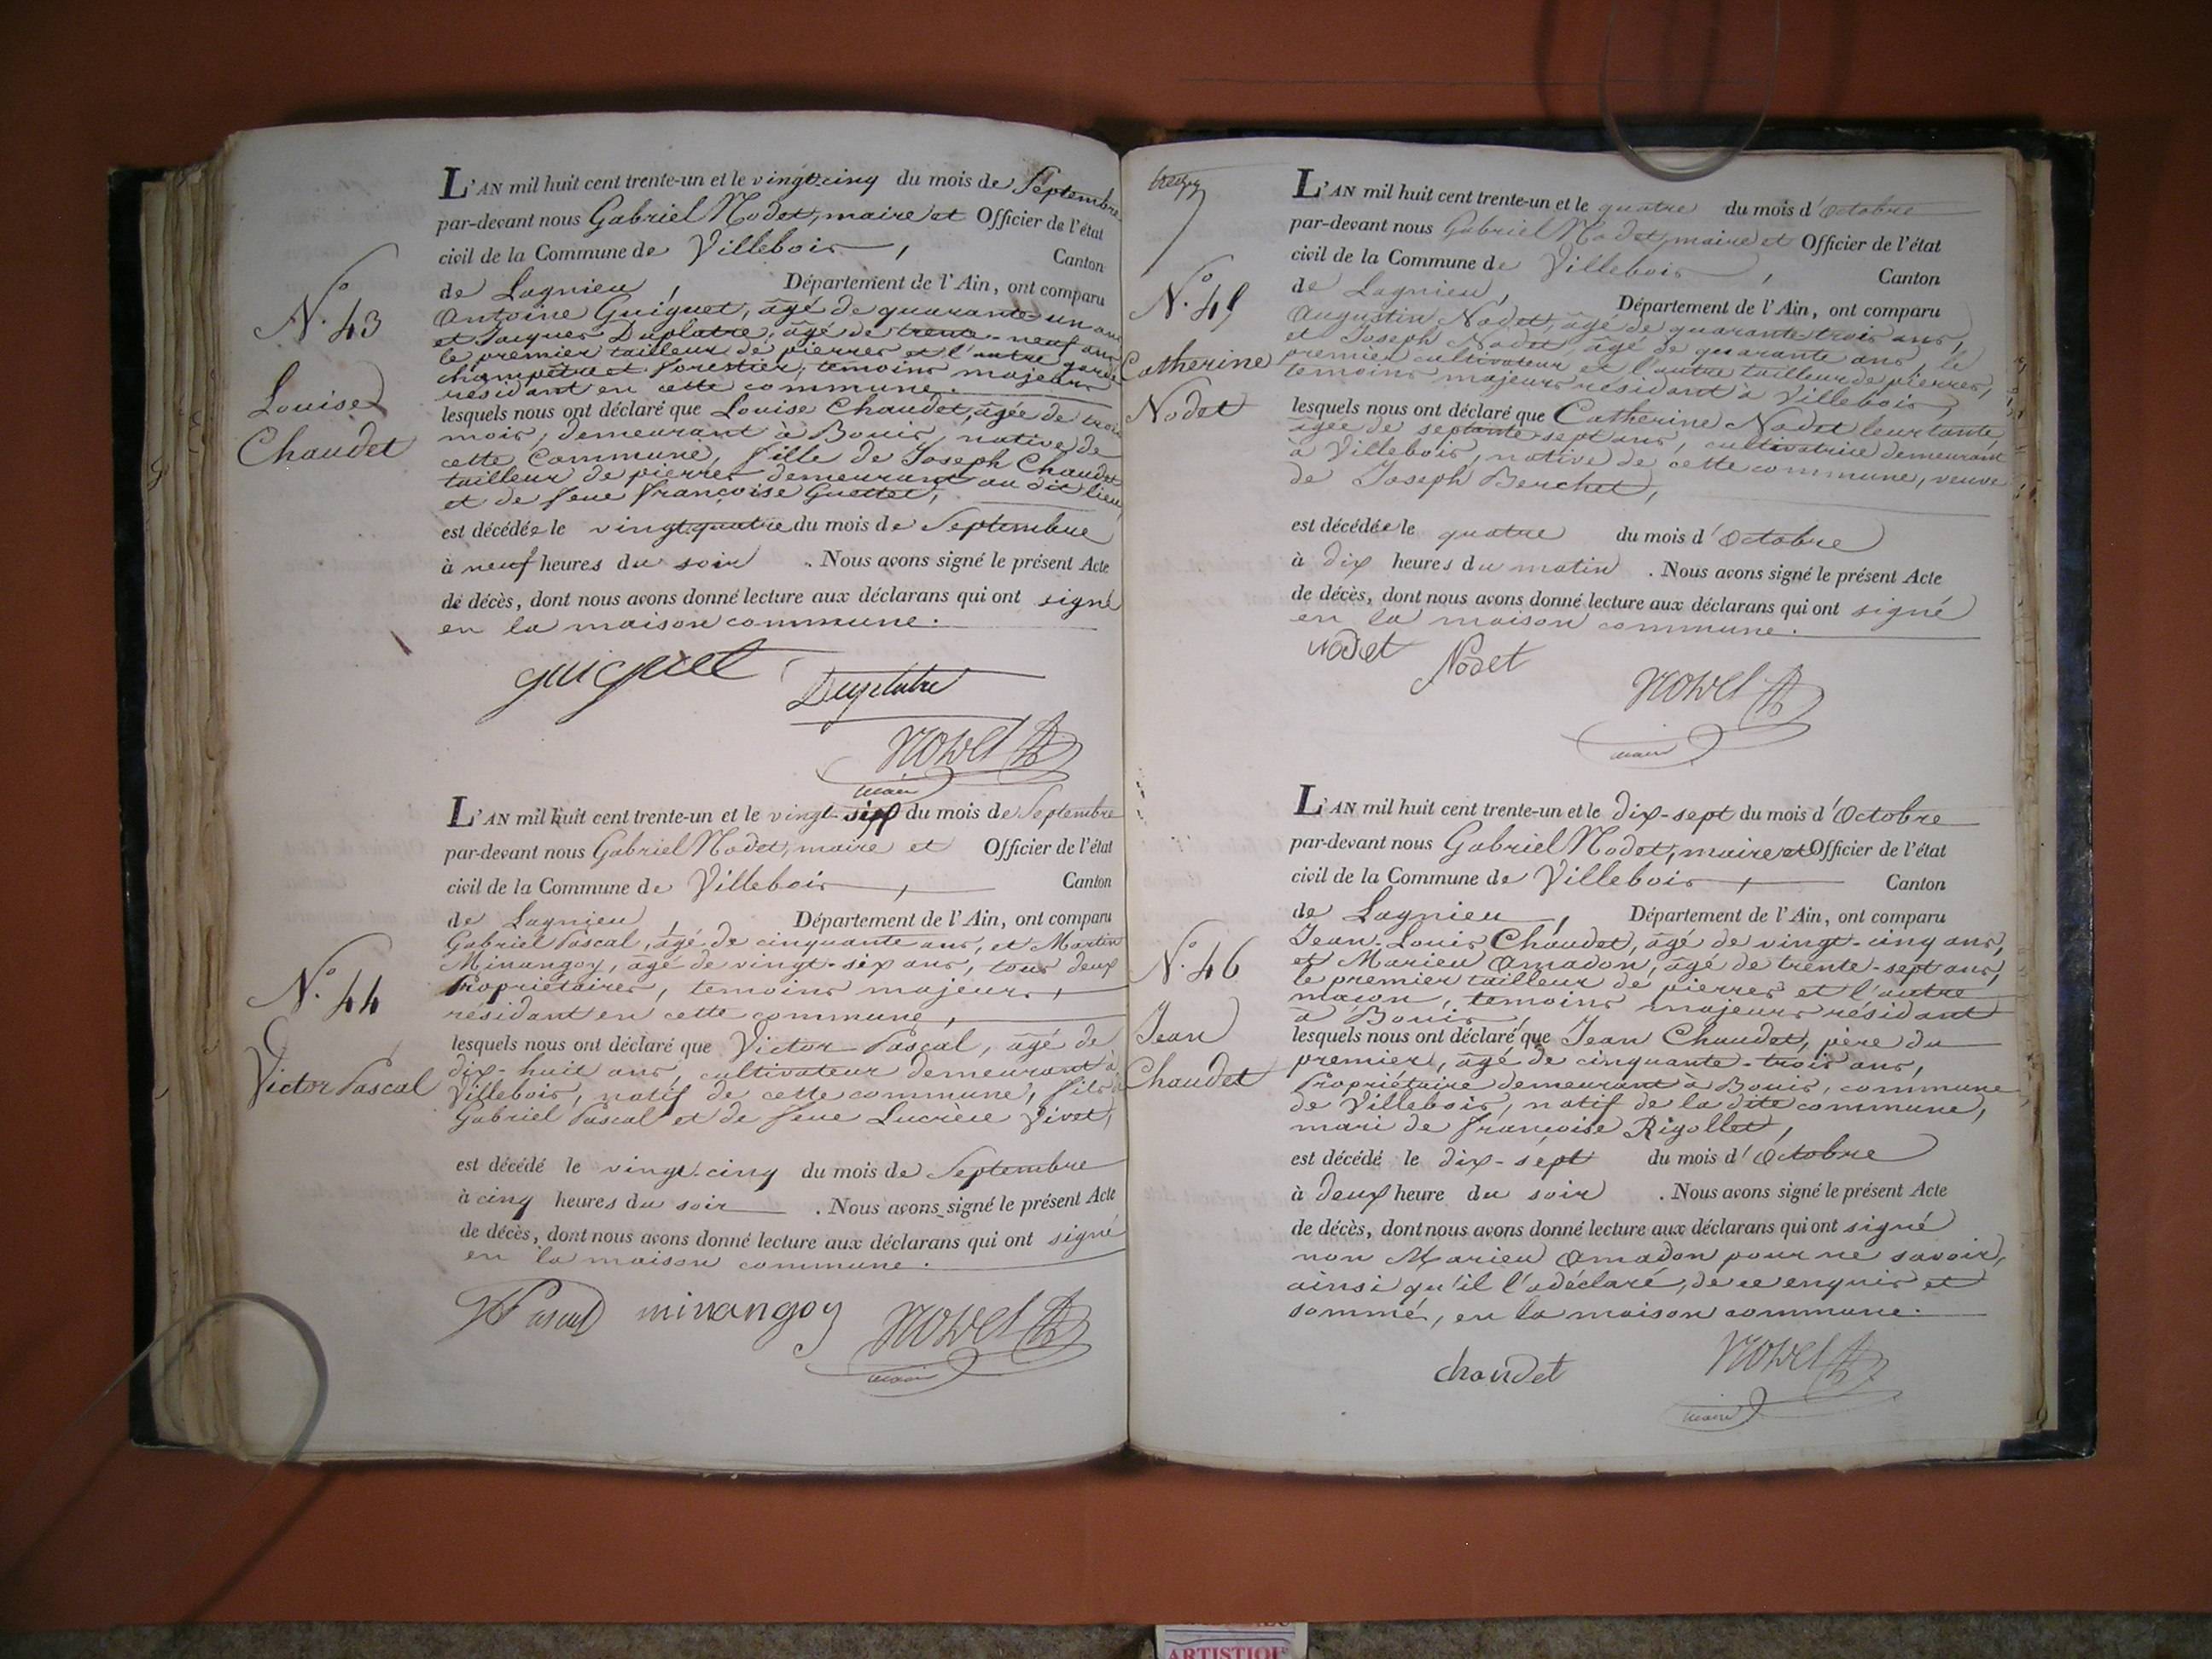 N.º 43
Louise
Chaudet
L'AN mil huit cent trente-un et le vingt-cinq du mois de Septembre
par-devant nous Gabriel Nodet, maire et Officier de l'état
civil de la Commune de Villebois, Canton
de Lagnieu, Département de l'Ain, ont comparu
Antoine Guiguet, âgé de quarante-un ans
et Jacques Duplatre, âgé de trente-neuf ans
le premier tailleur de pierres et l'autre garde
champêtre et forestier, temoins majeurs
résidant en cette commune.
lesquels nous ont déclaré que Louise Chaudet, âgée de trois
mois, demeurant à Bouis, native de
cette Commune, fille de Joseph Chaudet
tailleur de pierres demeurant au dit lieu
et de feue Françoise Guettet,
est décédée le vingt-quatre du mois de Septembre
à neuf heures du soir. Nous avons signé le présent Acte
de décès, dont nous avons donné lecture aux déclarans qui ont signé
en la maison commune.
guiguet
Duplatre
Nodet
maire
N.º 44
Victor Pascal
L'AN mil huit cent trente-un et le vingt-six du mois de Septembre
par-devant nous Gabriel Nodet, maire et Officier de l'état
civil de la Commune de Villebois, Canton
de Lagnieu, Département de l'Ain, ont comparu
Gabriel Pascal, âgé de cinquante ans, et Martin
Minangoy, âgé de vingt-six ans, tous deux
Propriétaires, temoins majeurs,
résidant en cette commune,
lesquels nous ont déclaré que Victor Pascal, âgé de
dix-huit ans, cultivateur demeurant à
Villebois, natif de cette commune, fils de
Gabriel Pascal et de feue Lucrèce Vivet,
est décédé le vingt-cinq du mois de Septembre
à cinq heures du soir. Nous avons signé le présent Acte
de décès, dont nous avons donné lecture aux déclarans qui ont signé
en la maison commune.
Pascal minangoy Nodet
maire
N.º 45
Catherine
Nodet
L'AN mil huit cent trente-un et le quatre du mois d'Octobre
par-devant nous Gabriel Nodet, maire et Officier de l'état
civil de la Commune de Villebois, Canton
de Lagnieu, Département de l'Ain, ont comparu
Augustin Nodet, âgé de quarante-trois ans,
et Joseph Nodet, âgé de quarante ans, le
premier cultivateur et l'autre tailleur de pierres,
temoins majeurs résidant à Villebois,
lesquels nous ont déclaré que Catherine Nodet leur tante,
âgée de septante-sept ans, cultivatrice demeurant
à Villebois, native de cette commune, veuve
de Joseph Berchet,
est décédée le quatre du mois d'Octobre
à dix heures du matin. Nous avons signé le présent Acte
de décès, dont nous avons donné lecture aux déclarans qui ont signé
en la maison commune.
Nodet Nodet
Nodet
maire
N.º 46
Jean
Chaudet
L'AN mil huit cent trente-un et le dix-sept du mois d'Octobre
par-devant nous Gabriel Nodet, maire et Officier de l'état
civil de la Commune de Villebois, Canton
de Lagnieu, Département de l'Ain, ont comparu
Jean-Louis Chaudet, âgé de vingt-cinq ans,
et Marieu Amadon, âgé de trente-sept ans,
le premier tailleur de pierres et l'autre
maçon, temoins majeurs résidant
à Bouis,
lesquels nous ont déclaré que Jean Chaudet, père du
premier, âgé de cinquante-trois ans,
Propriétaire demeurant à Bouis, commune
de Villebois, natif de la dite commune,
mari de Françoise Rigollet,
est décédé le dix-sept du mois d'Octobre
à deux heure du soir. Nous avons signé le présent Acte
de décès, dont nous avons donné lecture aux déclarans qui ont signé
non Marieu Amadon pour ne savoir,
ainsi qu'il l'a déclaré, de ce enquis et
sommé, en la maison commune.
chaudet
Nodet
maire
ARTISTIQUE